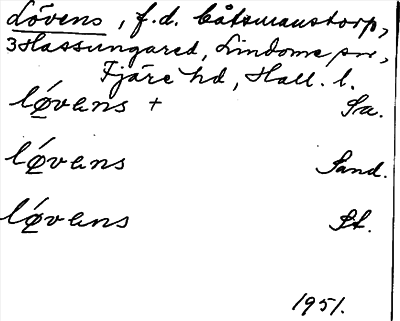 Lövens, f.d. båtsmanstorp,
3 Hassungared, Lindome sn,
Fjäre hd, Hall. l.
lǿvens + Sa.
lǿvens Sand.
lǿvens St.
1951.